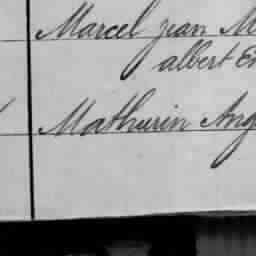 Marcel jean M
albert E
Mathurin Ang